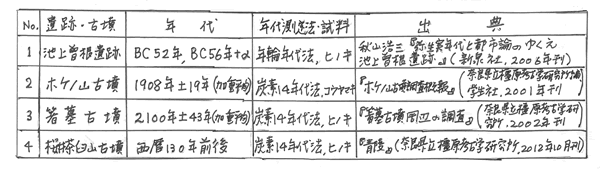 No. 遺跡・古墳 年代 年代測定法・試料 出典
1 池上曽根遺跡 BC52年, BC56年+α 年輪年代法, ヒノキ 秋山浩三『弥生実年代と都市論のゆくえ
池上曽根遺跡』(新泉社, 2006年刊)
2 ホケノ山古墳 1908年±19年(加重平均) 炭素14年代法, コウヤマキ 『ホケノ山古墳調査概報』(奈良県立橿原考古学研究所編
学生社, 2001年刊)
3 箸墓古墳 2100年±43年(加重平均) 炭素14年代法, ヒノキ 『箸墓古墳周辺の調査』(奈良県立橿原考古学研
究所, 2002年刊)
4 桜井茶臼山古墳 西暦130年前後 炭素14年代法, ヒノキ 『青陵』(奈良県立橿原考古学研究所, 2012年10月刊)